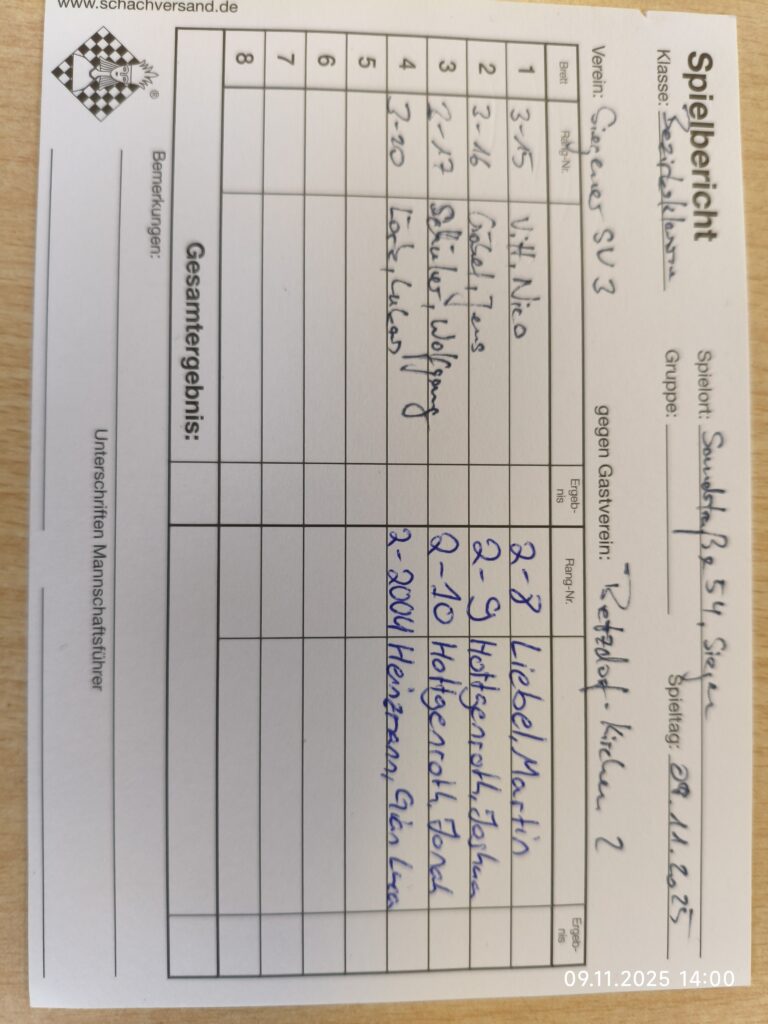 Spielbericht
Spielort: Sandstraße 54, Siegen
Klasse: Bezirksklasse Gruppe: Spieltag: 09.11.2025
Verein: Siegener SV 3 gegen Gastverein: Betzdorf-Kirchen 2
Brett Rang-Nr. Ergeb-nis Rang-Nr. Ergeb-nis
1 3-15 Vitt, Nico 2-8 Liebel, Martin
2 3-16 Göbel, Jens 2-9 Hottgenroth, Joshua
3 2-17 Schüler, Wolfgang 2-10 Hottgenroth, Jonah
4 3-20 Lukas 2-2004 Heinzmann, Gian Luca
5
6
7
8
Gesamtergebnis:
Bemerkungen:
Unterschriften Mannschaftsführer
®
www.schachversand.de
09.11.2025 14:00